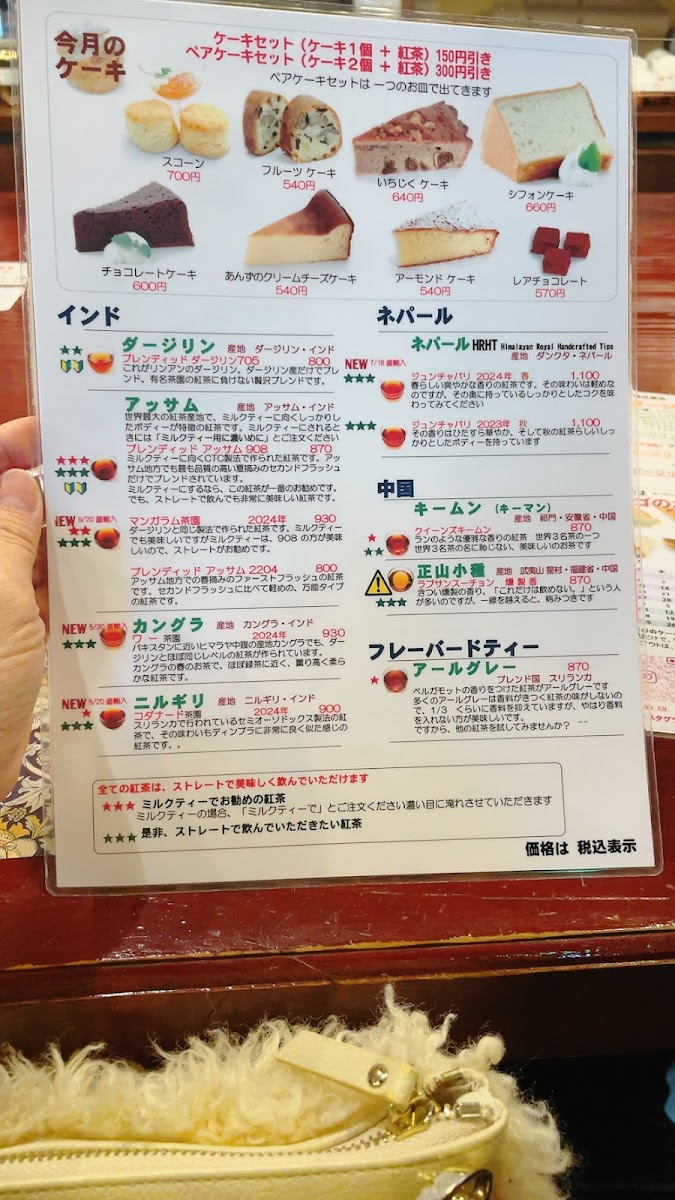 今月の
ケーキ
ケーキセット（ケーキ1個 ＋ 紅茶）150円引き
ペアケーキセット（ケーキ2個 ＋ 紅茶）300円引き
ペアケーキセットは 一つのお皿で出てきます
スコーン
700円
フルーツ ケーキ
540円
いちじく ケーキ
640円
シフォンケーキ
660円
チョコレートケーキ
600円
あんずのクリームチーズケーキ
540円
アーモンド ケーキ
540円
レアチョコレート
570円
インド
ダージリン 産地 ダージリン・インド
ブレンディッド ダージリン705 800
これがリンアンのダージリン、ダージリン産だけでブレ
ンド。有名茶園の紅茶に負けない贅沢ブレンドです。
アッサム 産地 アッサム・インド
世界最大の紅茶産地で、ミルクティーに向くしっかりし
たボディーが特徴の紅茶です。ミルクティーにされると
きには「ミルクティー用に濃いめに」とご注文ください
ブレンディッド アッサム 908 870
ミルクティーに向くCTC製法で作られた紅茶です。アッ
サム地方でも最も品質の高い夏摘みのセカンドフラッシュ
だけでブレンドされています。
ミルクティーにするなら、この紅茶が一番のお勧めです。
でも、ストレートで飲んでも非常に美味しい紅茶です。
NEW 9/20 直輸入
マンガラム茶園 2024年 930
ダージリンと同じ製法で作られた紅茶です。ミルクティー
でも美味しいですがミルクティーは、908 の方が美味
しいので、ストレートがお勧めです。
ブレンディッド アッサム 2204 800
アッサム地方での春摘みのファーストフラッシュの紅茶
です。セカンドフラッシュに比べて軽めの、万能タイプ
の紅茶です。
NEW 5/20 直輸入
カングラ 産地 カングラ・インド
ワー 茶園 2024年 930
パキスタンに近いヒマラヤ中腹の産地カングラでも、ダー
ジリンとほぼ同じレベルの紅茶が作られています。
カングラの春のお茶で、ほぼ緑茶に近く、薫り高く柔ら
かな紅茶です。
NEW 5/20 直輸入
ニルギリ 産地 ニルギリ・インド
コダナード茶園 2024年 900
スリランカで行われているセミオーソドックス製法の紅
茶で、その味わいもディンブラに非常に良く似た感じの
紅茶です。。
ネパール
ネパール HRHT Himalayan Royal Handcrafted Tips
産地 ダンクタ・ネパール
NEW 7/18 直輸入
ジュンチャバリ 2024年 春 1,100
春らしい爽やかな香りの紅茶です。その味わいは軽めな
のですが、その奥に持っているしっかりとしたコクを味
わってみてください
ジュンチャバリ 2023年 秋 1,100
その香りはひたすら華やか、そして秋の紅茶らしいしっ
かりとしたボディーを持っています
中国
キームン （キーマン）
産地 祁門・安徽省・中国
クイーンズキームン 870
ランのような優雅な香りの紅茶 世界3名茶の一つ
世界3名茶の名に恥じない、美味しいのお茶です
正山小種 産地 武夷山 星村・福建省・中国
ラプサンスーチョン 燻製香 870
きつい燻製の香り。「これだけは飲めない。」という人
が多いのですが、一線を越えると、病みつきです
フレーバードティー
アールグレー 870
ブレンド国 スリランカ
ベルガモットの香りをつけた紅茶がアールグレーです
多くのアールグレーは香料がきつく紅茶の味がしないの
で、1/3 くらいに香料を抑えていますが、やはり香料
を入れない方が美味しいです。
ですから、他の紅茶を試してみませんか？ ^^
全ての紅茶は、ストレートで美味しく飲んでいただけます
★★★ ミルクティーでお勧めの紅茶
ミルクティーの場合、「ミルクティーで」とご注文ください濃い目に淹れさせていただきます
★★★ 是非、ストレートで飲んでいただきたい紅茶
価格は 税込表示